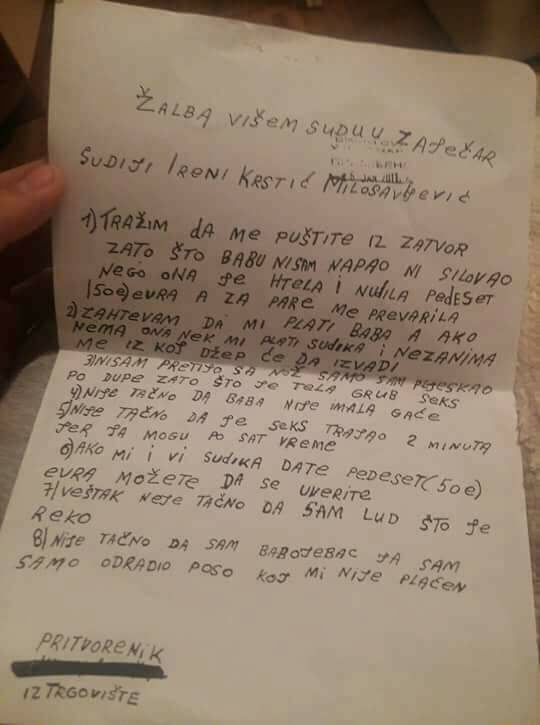 ŽALBA VIŠEM SUDUU ZAJEČAR
SUDIJI IRENI KRSTIĆ MILOSAVJEVIĆ
1) TRAŽIM DA ME PUŠTITE IZ ZATVOR
ZATO ŠTO BABU NISAM NAPAO NI SILOVAO
NEGO ONA JE HTELA I NUĐILA PEDESET
(50e) EVRA A ZA PARE ME PREVARILA
2) ZAHTEVAM DA MI PLATI BABA A AKO
NEMA ONA NEK MI PLATI SUDIKA I NEZANIMA
ME IZ KOJ DŽEP ĆE DA IZVADI
3) NISAM PRETIJO SA NOŽ SAMO SAM PLJESKAO
PO DUPE ZATO ŠTO JE TELA GRUB SEKS
4) NIJE TAČNO DA BABA NIJE IMALA GAĆE
5) NIJE TAČNO DA JE SEKS TRAJAO 2 MINUTA
JER JA MOGU PO SAT VREME
6) AKO MI I VI SUDIKA DATE PEDESET (50e)
EVRA MOŽETE DA SE UVERITE
7) VEŠTAK NEJE TAČNO DA SAM LUD ŠTO JE
REKO
8) NIJE TAČNO DA SAM BABOJEBAC JA SAM
SAMO ODRADIO POSO KOJ MI NIJE PLAĆEN
PRITVORENIK
IZ TRGOVIŠTE